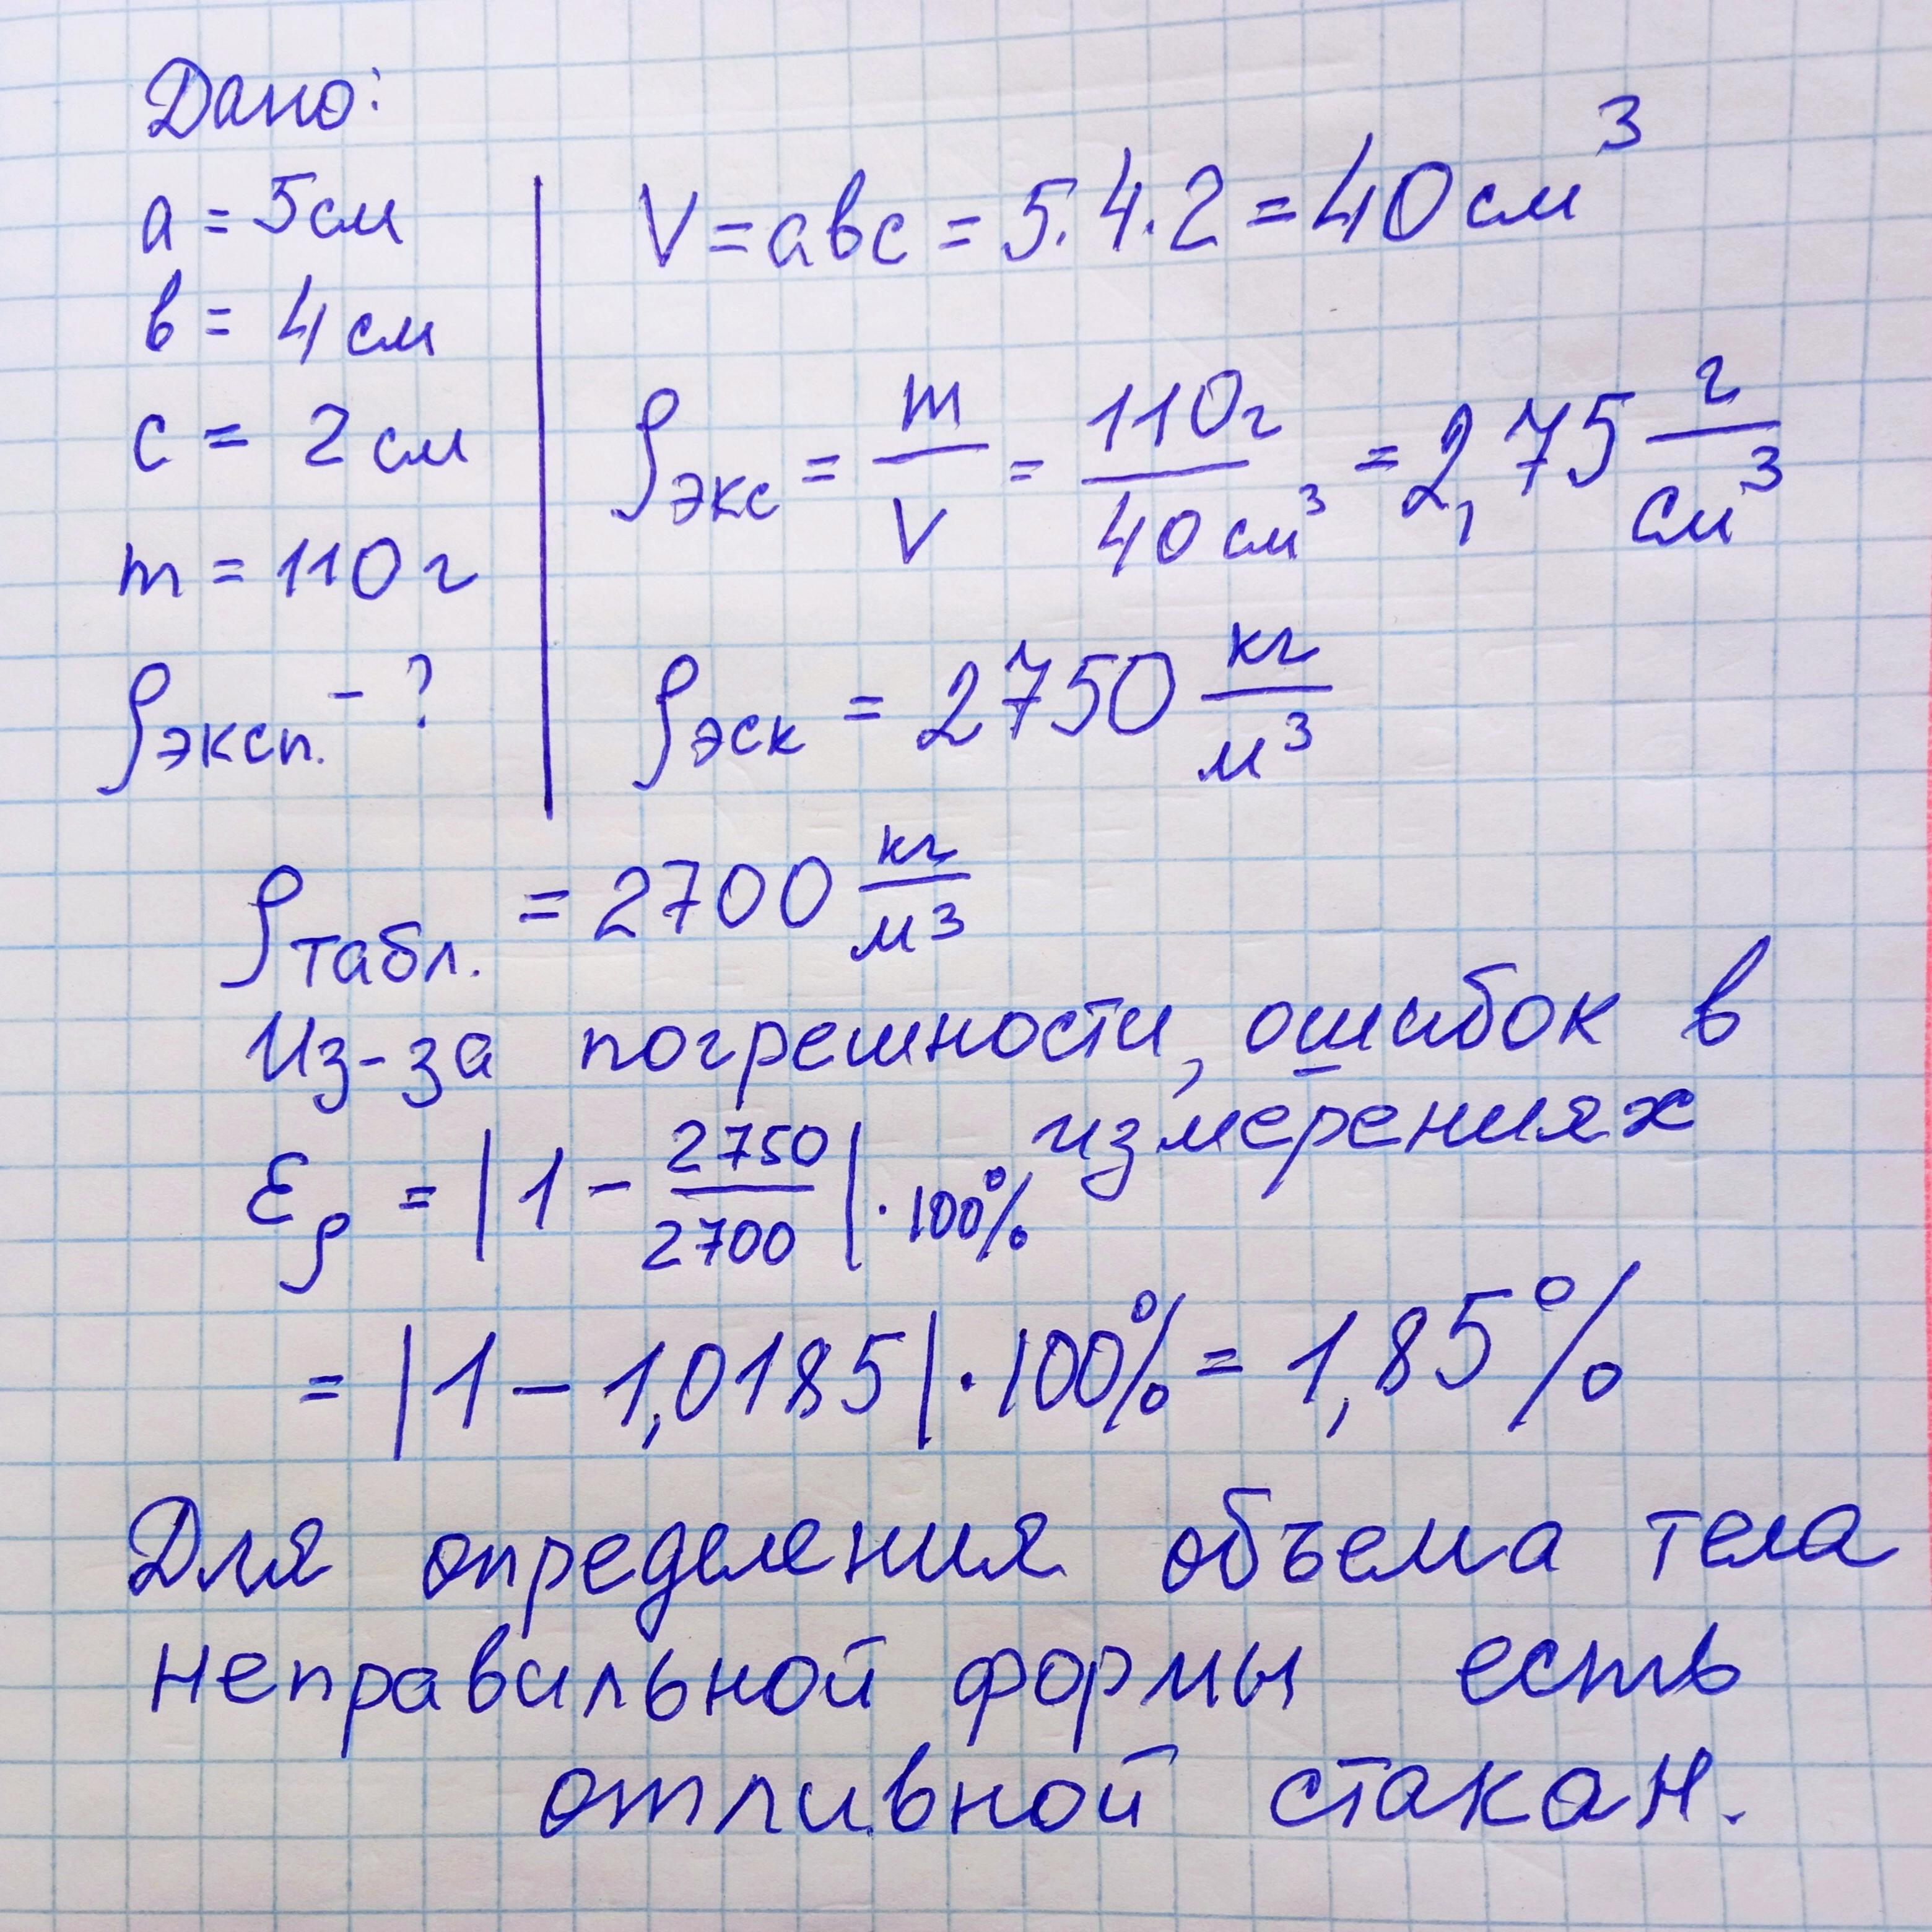 Дано:
a = 5 см
в = 4 см
c = 2 см
m = 110 г
ρэксп. - ?
V = aвc = 5·4·2 = 40 см³
ρэкс = m/V = 110г/40 см³ = 2,75 г/см³
ρэск = 2750 кг/м³
ρтабл. = 2700 кг/м³
Из-за погрешности, ошибок в
измерениях
ερ = |1 - 2750/2700| · 100%
= |1 - 1,0185| · 100% = 1,85%
Для определения объема тела
неправильной формы есть
отливной стакан.